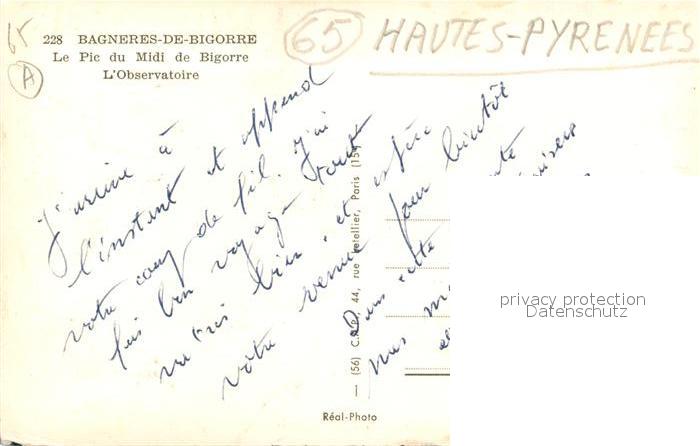 65
A
228 BAGNERES-DE-BIGORRE
Le Pic du Midi de Bigorre
L'Observatoire
65 HAUTES-PYRENEES
J'arrive à
l'instant et apprend
votre coup de fil. J'ai
fais bon voyage. Tout
va très bien. et espère
votre venue pour bientôt
Dans cette
mes
(56) C.A.P., 44, rue Letellier, Paris (15e)
Réal-Photo
privacy protection
Datenschutz